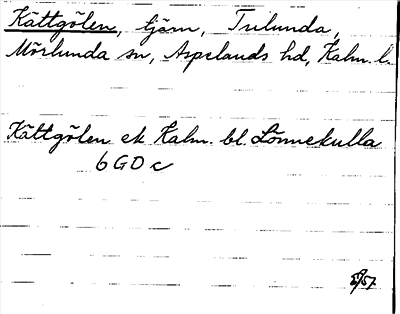 Kättgölen, tjärn, Tulunda,
Mörlunda sn, Aspelands hd, Kalm. l.
Kättgölen ek Kalm. bl. Lönnekulla
6 G 0 c